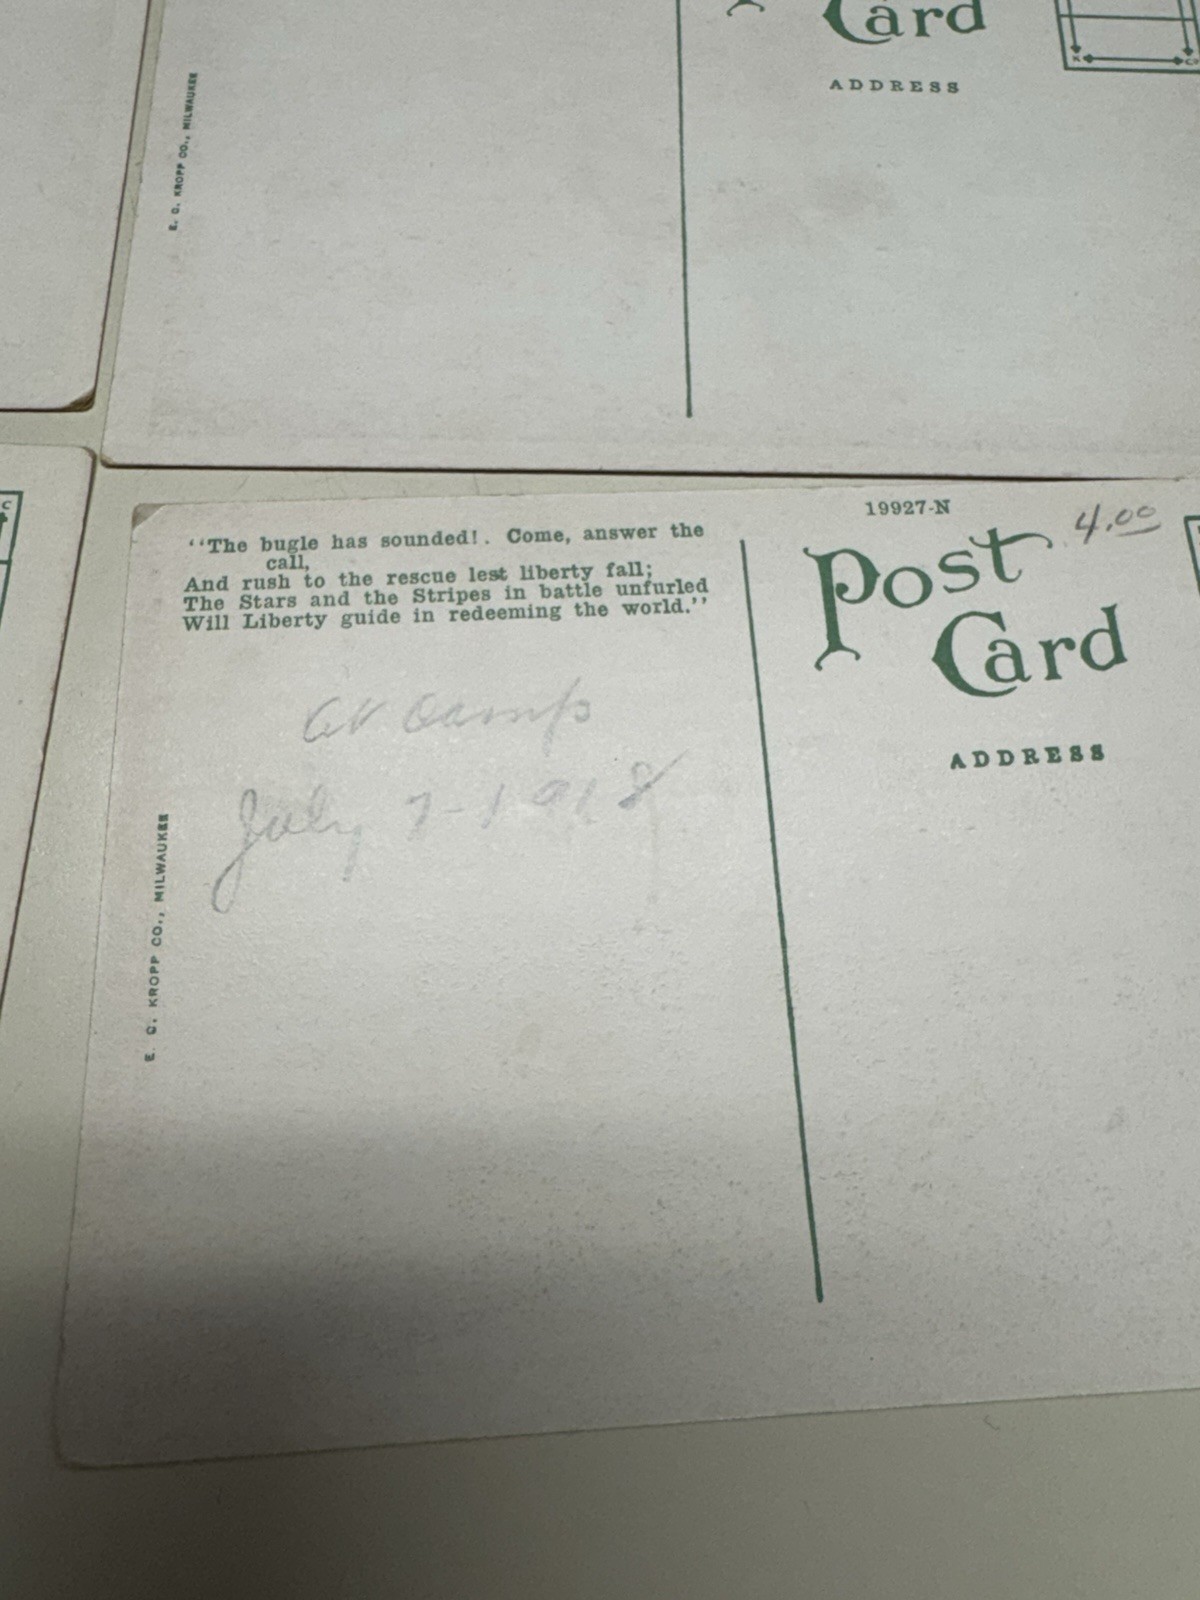 Card
ADDRESS
E. C. KROPP CO., MILWAUKEE
C
19927-N
4.00
"The bugle has sounded!. Come, answer the
call,
And rush to the rescue lest liberty fall;
The Stars and the Stripes in battle unfurled
Will Liberty guide in redeeming the world."
Post
Card
ADDRESS
at Camp
July 7-1918
E. C. KROPP CO., MILWAUKEE